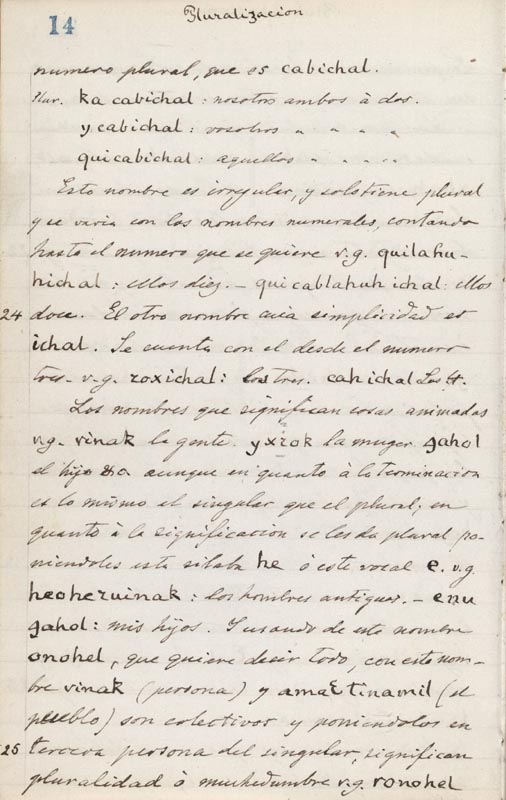 Pluralizacion
14
numero plural, que es cabichal.
Plur. ka cabichal: nosotros ambos à dos.
y cabichal: vosotros " " " "
qui cabichal: aquellos " " " "
Este nombre es irregular, y solo tiene plural
y se varia con los nombres numerales, contando
hasta el numero que se quiere v.g. quilahu-
hichal: ellos diez. – qui cablahuh ichal: ellos
24 doce. El otro nombre cuia simplicidad es
ichal. Se cuenta con el desde el numero
tres. v.g. roxichal: los tres. cah ichal Los 4.
Los nombres que significan cosas animadas
v.g. vinak la gente. yxrok la muger. gahol
el hijo &a aunque en quanto à la terminacion
es lo mismo el singular que el plural; en
quanto à la significacion se les da plural po-
niendoles esta silaba he ó este vocal e. v.g.
heoheruinak: los hombres antiguos. – enu
gahol: mis hijos. Y usando de este nombre
onohel, que quiere decir todo, con este nom-
bre vinak (persona) y amaƐtinamil (el
pueblo) son colectivos y poniendolos en
25 tercera persona del singular, significan
pluralidad ò muchedumbre v.g. ronohel